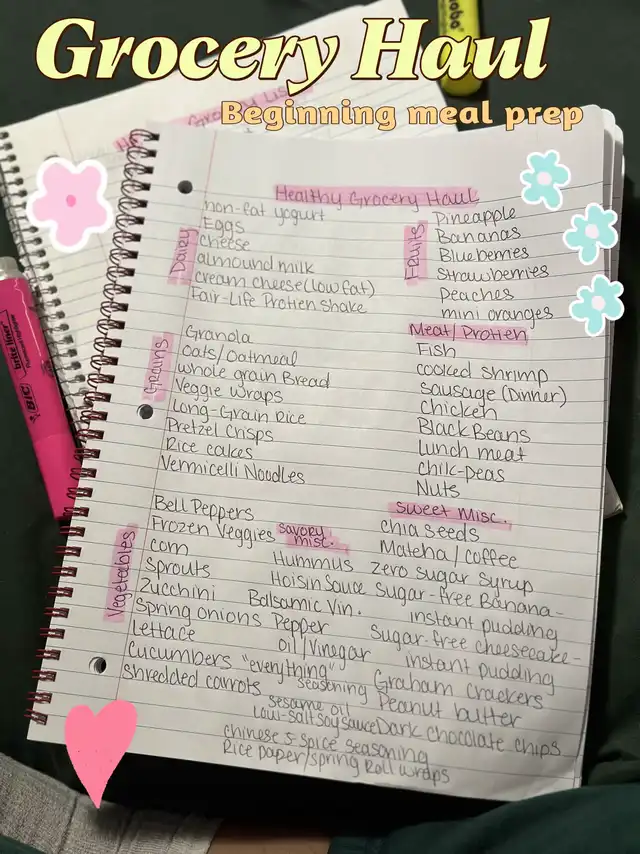 Grocery Haul
Beginning meal prep
Healthy Grocery Haul
Dairy
non-fat yogurt
Eggs
cheese
almound milk
cream cheese (low fat)
Fair-Life Protien shake
Fruits
Pineapple
Bananas
Blueberries
Strawberries
Peaches
mini oranges
Grains
Granola
Oats/Oatmeal
whole grain Bread
Veggie wraps
Long-Grain Rice
Pretzel Crisps
Rice cakes
Vermicelli Noodles
Meat/Protien
Fish
cooked shrimp
Sausage (Dinner)
Chicken
Black Beans
Lunch meat
chik-peas
Nuts
Vegetables
Bell Peppers
Frozen Veggies
corn
Sprouts
Zucchini
Spring onions
Lettace
Cucumbers
Shredded carrots
Savory mist.
Hummus
Hoisin Sauce
Balsamic Vin.
Pepper
oil/Vinegar
"everything"
seasoning
sesame oil
Low-salt soy sauce
chinese 5 spice seasoning
Rice paper/spring Roll wraps
Sweet Misc.
chia seeds
Matcha/coffee
zero sugar syrup
Sugar-free Banana-
instant pudding
Sugar-free cheesecake-
instant pudding
Graham Crackers
Peanut butter
Dark chocolate chips
BIC
brite liner